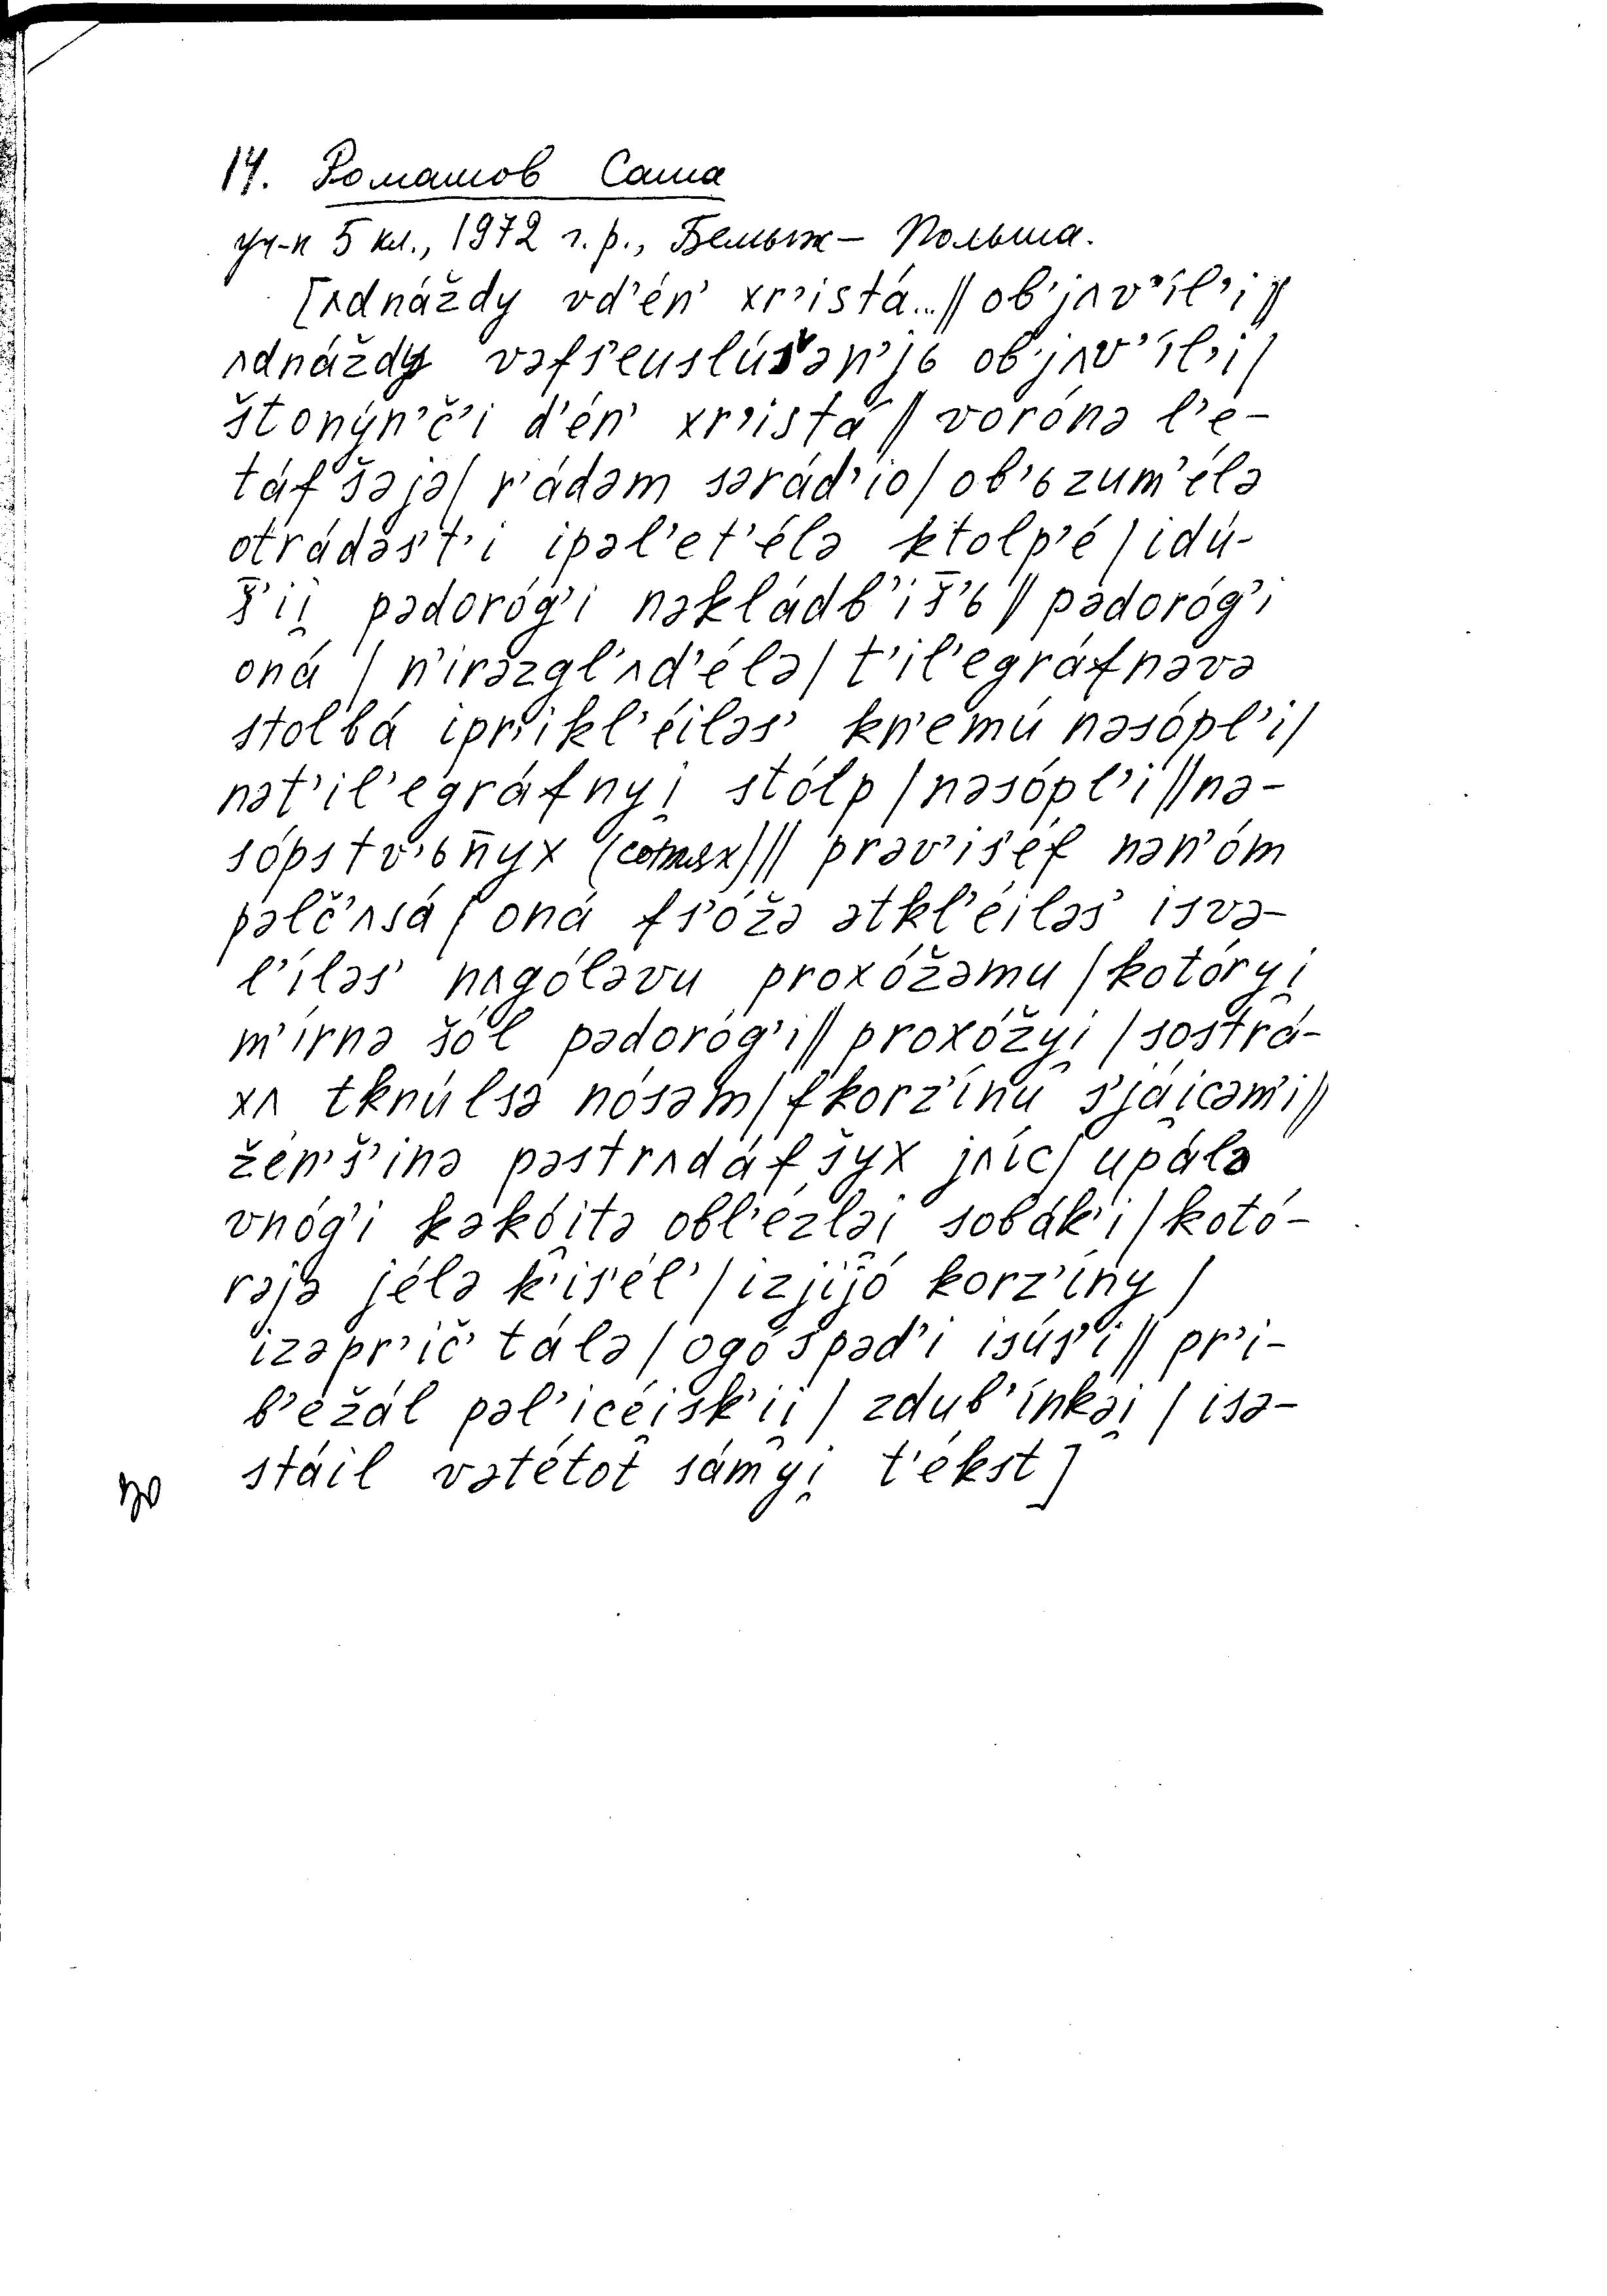 14. Ромашов Саша
уч-к 5 кл., 1972 г.р., Белыж – Польша.
[ʌdnáždy vd'én' xr'istá...// ob'jʌv'íl'i//
ʌdnáždy vəfs'euslúšən'jь ob'jʌv'íl'i/
štonýn'č'i d'én' xr'istá// voróna l'e-
táfšəjə/ r'ádəm sərád'io/ ob'ьzum'élə
otrádəs't'i ipəl'et'élə ktolp'é/idú-
š̄'ii̯ pədoróg'i nəkládb'iš̄'ь// pədoróg'i
oná / n'irəzgl'ʌd'élə/ t'il'egráfnəvə
stolbá ipr'ikl'éiləs' kn'emú nəsópl'i/
nət'il'egráfnyi̯ stólp /nəsópl'i//nə-
sópstv'ьn̄yx (соплях)// prəv'is'éf nən'óm
pəlč'ʌsá/ oná fs'óžə ətkl'éiləs' isvə-
l'íləs' nʌgóləvu proxóžəmu /kotóryi̯
m'írnə šól pədoróg'i// proxóžyi̯ /sostrá-
xʌ tknúlsə nósəm/fkorz'ínu s'jái̯cəm'i//
žén'š'inə pəstrʌdáfšyx jʌíc/ upálə
vnóg'i kəkói̯tə obl'ézləi̯ sobák'i/kotó-
rəjə jélə k'is'él' /izjijó korz'íny /
izəpr'ič'tálə /ogóspəd'i isús'i// pr'i-
b'ežál pəl'icéi̯sk'ii̯/ zdub'ínkəi̯ /isə-
stáil vətétot sámyi̯ t'ékst]